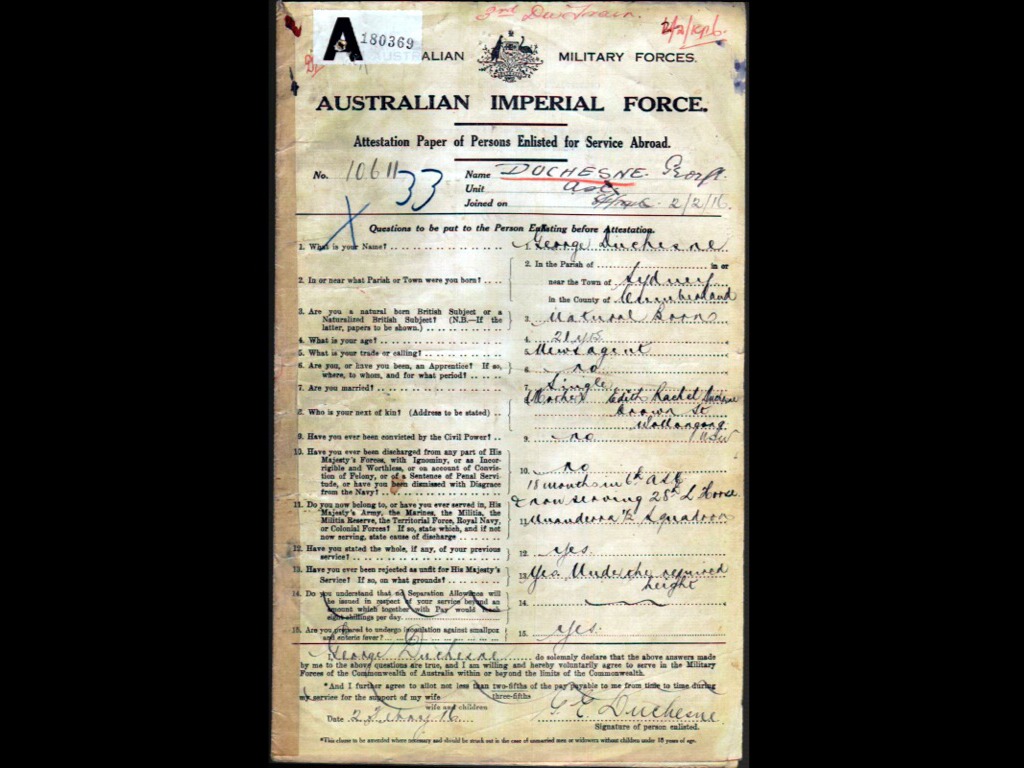 3rd Div Train
2/2/16
A 180369
AUSTRALIAN MILITARY FORCES.
AUSTRALIAN IMPERIAL FORCE.
Attestation Paper of Persons Enlisted for Service Abroad.
No. 10611 33 Name DUCHESNE. George.
Unit ASC
Joined on 2/2/16.
Questions to be put to the Person Enlisting before Attestation.
1. What is your Name? 1. George Duchesne
2. In or near what Parish or Town were you born? 2. In the Parish of in or
near the Town of Sydney
in the County of Cumberland
3. Are you a natural born British Subject or a
Naturalized British Subject? (N.B.—If the
latter, papers to be shown.) 3. Natural Born
4. What is your age? 4. 21 yrs
5. What is your trade or calling? 5. Newsagent
6. Are you, or have you been, an Apprentice? If so,
where, to whom, and for what period? 6. no
7. Are you married? 7. Single
8. Who is your next of kin? (Address to be stated) 8. Mother Edith Rachel Duchesne
Crown St
Wollongong
NSW
9. Have you ever been convicted by the Civil Power? 9. no
10. Have you ever been discharged from any part of His
Majesty's Forces, with Ignominy, or as Incor-
rigible and Worthless, or on account of Convic-
tion of Felony, or of a Sentence of Penal Servi-
tude, or have you been dismissed with Disgrace
from the Navy? 10. no
11. Do you now belong to, or have you ever served in, His
Majesty's Army, the Marines, the Militia, the
Militia Reserve, the Territorial Force, Royal Navy,
or Colonial Forces? If so, state which, and if not
now serving, state cause of discharge 18 months in 6th ASC
& now serving 28th L Horse
11. Unanderra Squadron
12. Have you stated the whole, if any, of your previous
service? 12. yes.
13. Have you ever been rejected as unfit for His Majesty's
Service? If so, on what grounds? 13. Yes Under the required
height
14. Do you understand that no Separation Allowance will
be issued in respect of your service beyond an
amount which together with Pay would reach
eight shillings per day. 14.
15. Are you prepared to undergo inoculation against smallpox
and enteric fever? 15. yes.
I George Duchesne do solemnly declare that the above answers made
by me to the above questions are true, and I am willing and hereby voluntarily agree to serve in the Military
Forces of the Commonwealth of Australia within or beyond the limits of the Commonwealth.
*And I further agree to allot not less than two-fifths of the pay payable to me from time to time during
three-fifths
my service for the support of my wife
wife and children
Date 16 G E Duchesne
Signature of person enlisted.
*This clause to be amended where necessary and should be struck out in the case of unmarried men or widowers without children under 18 years of age.